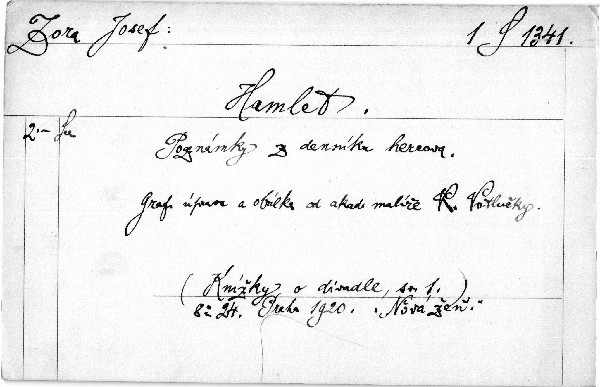 Zora Josef:
1 S 1341.
Hamlet.
2.-
Poznámky z denníku hercova.
Graf. úprava a obálka od akad. malíře K. Votlučky.
(Knížky o divadle, sv. 1.)
8° 24. Praha 1920. "Nová žeň."